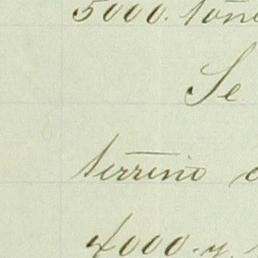 5000. tone
Se
terrino
4000. y